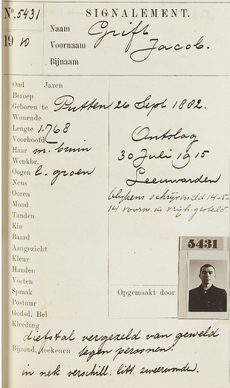 No. 5431 SIGNALEMENT.
1910 Naam Grift
Voornaam Jacob.
Bijnaam
Oud Jaren
Beroep
Geboren te Putten 26 Sept 1882.
Wonende
Lengte 1.768
Voorhoofd Ontslag
Haar m. bruin 30 Juli 1915
Wenkbr.
Oogen l. groen Leeuwarden
Neus
Ooren blijkens schrijven d.d 14-5-
Mond 14 voorw. in vrijh. gesteld.
Tanden
Kin
Baard
Aangezicht
Kleur
Handen
Voeten
Spraak
Postuur
Godsd. Bel
Kleeding
Opgemaakt door
5431
diefstal vergezeld van geweld
Bijzond. teekenen tegen personen.
in nek verschill. litt.